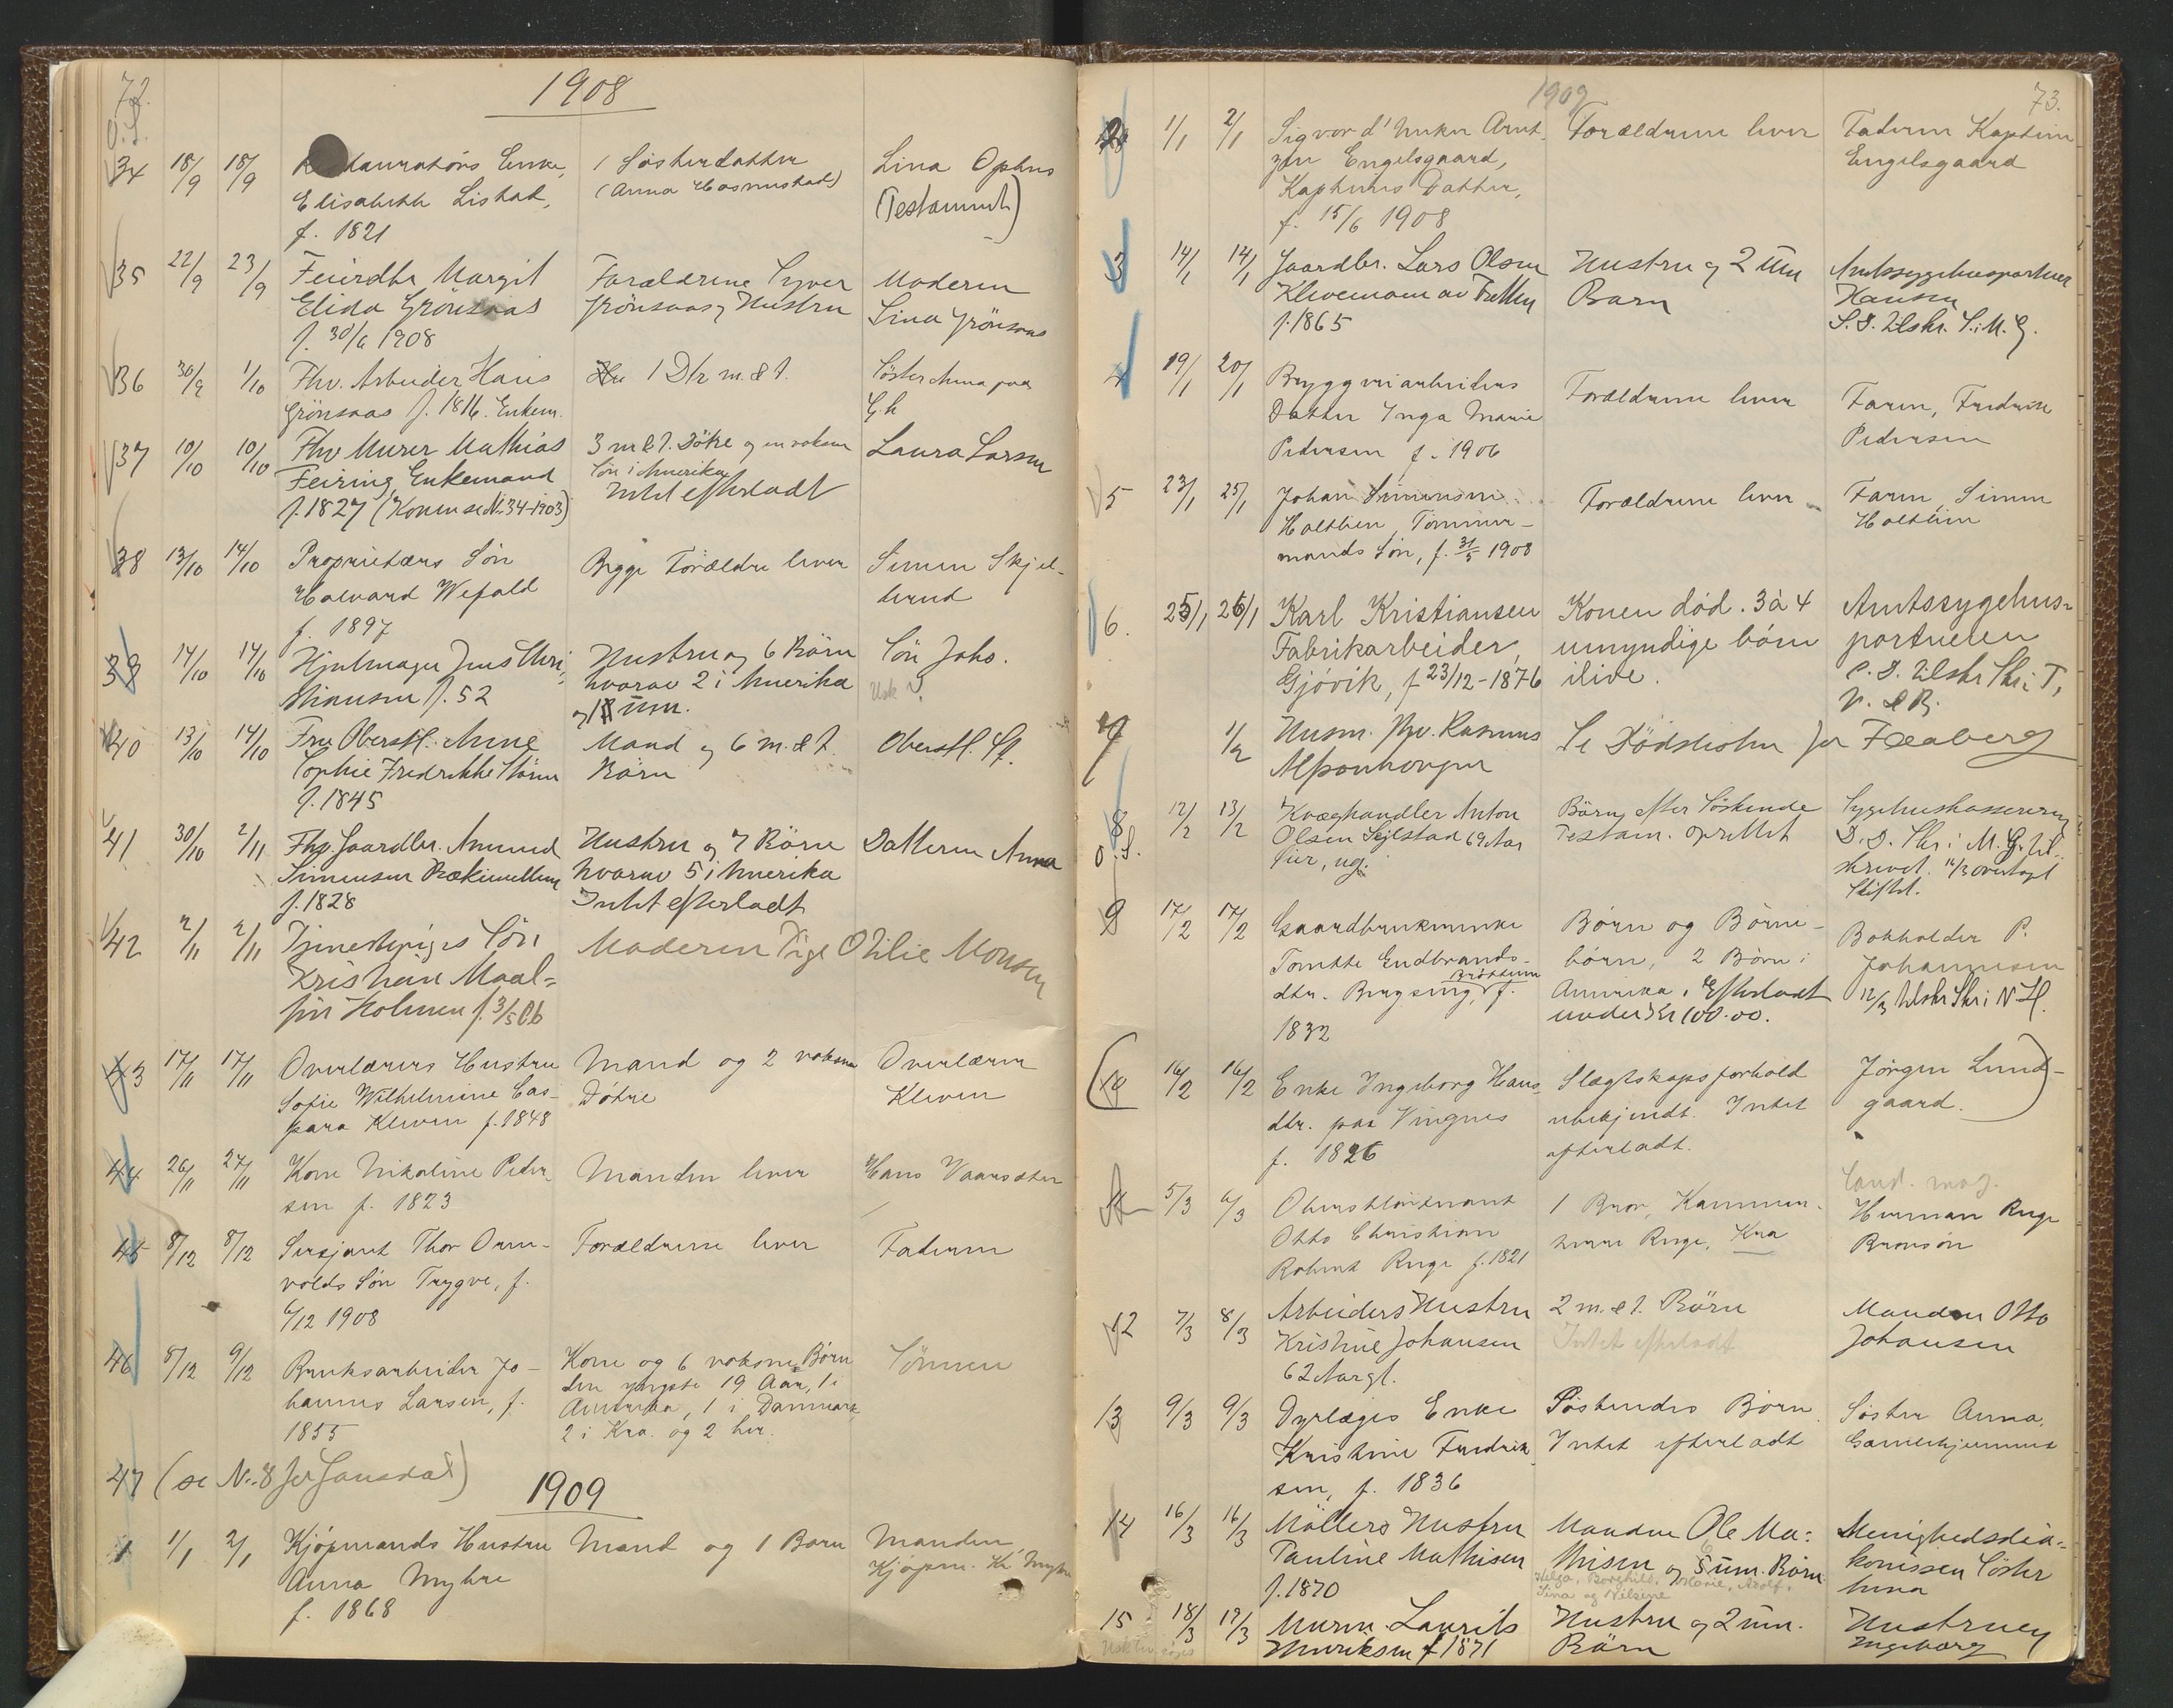 72.
1908
O.S.
34 18/9 18/9 Enke, 1 Søsterdatter Lina Ophus
Elisabeth Listad, (Anna Hosmestad) (Testament)
f. 1821
35 22/9 23/9 Margit Forældrene Syver Moderen
Elida Grönsaas Grönsaas og Hustru Lina Grönsaas
f. 30/6 1908
36 30/9 1/10 Fhv. Arbeider Hans 1 Dtr m. & f. Söster Anna paa
Grönsaas f. 1816. Enkem. G.h
37 10/10 10/10 Fhv Murer Mathias 3 m & f. Døtre og en voksen Laura Larsen
Feiring, Enkemand Søn i Amerika
f. 1827 (Konen se N. 34-1903) Intet efterladt
38 13/10 14/10 Proprietærs Søn Begge Forældre lever Simen Skjel-
Halvard Wefald
f. 1897
39 14/10 14/10 Hjulmager Jens Chri- Hustru og 6 Börn Sön Johs.
stiansen f. 52 hvorav 2 i Amerika
og 1 um.
40 13/10 14/10 Fru Oberstl. Anne Mand og 6 m. & f. Oberstl. St.
Sophie Fredrikke Stören Börn
f. 1845
41 30/10 2/11 Fhv. Gaardbr. Amund Hustru og 7 Börn Datteren Anna
Simensen hvorav 5 i Amerika
f. 1828 Intet efterladt
42 2/11 2/11 Tjenestepiges Sön Moderen Pige Otilie Monsen
Kristian Maal-
Holmen f. 3/5 06
43 17/11 17/11 Overlærers Hustru Mand og 2 voksne Overlærer
Sofie Wilhelmine Cas- Døtre Kleven
para Kleven f. 1848
44 26/11 27/11 Kone Nikoline Peder- Manden lever Hans Vaarsæter
sen f. 1823
45 8/12 8/12 Sersjant Thor Orm- Forældrene lever Faderen
volds Søn Trygve, f.
6/12 1908
46 8/12 9/12 Bruksarbeider Jo- Kone og 6 voksne Børn Sønnen
hannes Larsen, f. den yngste 19 Aar, 1 i
1855 Amerika, 1 i Danmark,
2 i Kra. og 2 her.
47 (se N. 8 for Gausdal)
1909
1 1/1 2/1 Kjøpmands Hustru Mand og 1 Barn Manden
Anna Myhre Kjøpm. Kr. Myhre
f. 1868
1909
73.
2 1/1 2/1 Sigvor Arnt- Forældrene lever Faderen Kaptein
zen Engelsgaard, Engelsgaard
Kapteins Datter,
f. 15/6 1908
3 14/1 14/1 Gaardbr. Lars Olsen Hustru og 2 um Amtssygehusportner
Klevemoen av Tretten Barn Hansen
f. 1865 S. D. tilskr. S. i M. G.
4 19/1 20/1 Bryggeriarbeiders Forældrene lever Faren, Fredrik
Datter Inga Marie Pedersen
Pedersen f. 1906
5 23/1 25/1 Johan Simensen Forældrene lever Faren, Simen
Holtlien, Tømmer- Holtlien
mands Søn, f. 31/5 1908
6. 25/1 26/1 Karl Kristiansen Konen død. 3 à 4 Amtssygehus-
Fabrikarbeider, umyndige børn portneren
Gjøvik, f 23/12-1876 ilive. S. D. tilskr. Skr. i T,
V. & B.
7 1/2 Husm. Fhv. Rasmus Se Dödslisten for Faaberg
8 12/2 13/2 Kvæghandler Anton Börn efter Söskende Sygehuskassereren
O.S. Olsen Sejlstad 69 Aar Testam. oprettet S. D. Skr. i M. G. til-
ug. skrevet. 16/3 overtagt
Skiftet.
9 17/2 17/2 Gaardbrukerenke Børn og Børne- Bokholder P.
Tomtte Gudbrands- børn, 2 Børn i Johannesen
dtr. Bergseng, Brøttum f. Amerika. Efterladt 12/3 tilskr Skr i N H.
1832 under Kr 100.00.
10 16/2 16/2 Enke Ingeborg Hans- Slægtskapsforhold Jørgen Lund-
dtr. paa Vingnes ubekjendt. Intet gaard.
f. 1826 efterladt.
11 5/3 6/3 Oberstløitnant 1 Bror, Kammer- Cand. mag.
Otto Christian herre Ruge, Kra Herman Ruge
Robert Ruge f. 1821 Brorsøn
12 7/3 8/3 Arbeiders Hustru 2 m. & f. Börn Manden Otto
Kristine Johansen Intet efterladt Johansen
62 Aar gl.
13 9/3 9/3 Dyrlæges Enke Søskendes Børn. Søster Anna,
Kristine Fredrik- Intet efterladt Gamlehjemmet
sen, f. 1836
14 16/3 16/3 Möllers Hustru Manden Ole Ma- Menighedsdia-
Pauline Mathisen thisen og 6 um. Börn konissen Söster
f. 1870 Helga, Borghild, Marie, Adolf, Anna
Lina og Nilsine
15 18/3 19/3 Murer Laurits Hustru og 2 um. Hustruen
Henriksen f 1871 Börn Ingeborg